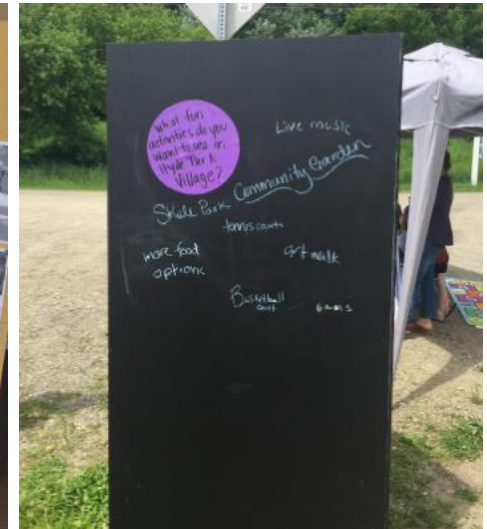 What fun
activities do you
want to see in
Hyde Park
Village?
Live music
Community Garden
Skate Park
tennis courts
more food
options
art walk
Basketball
court
games